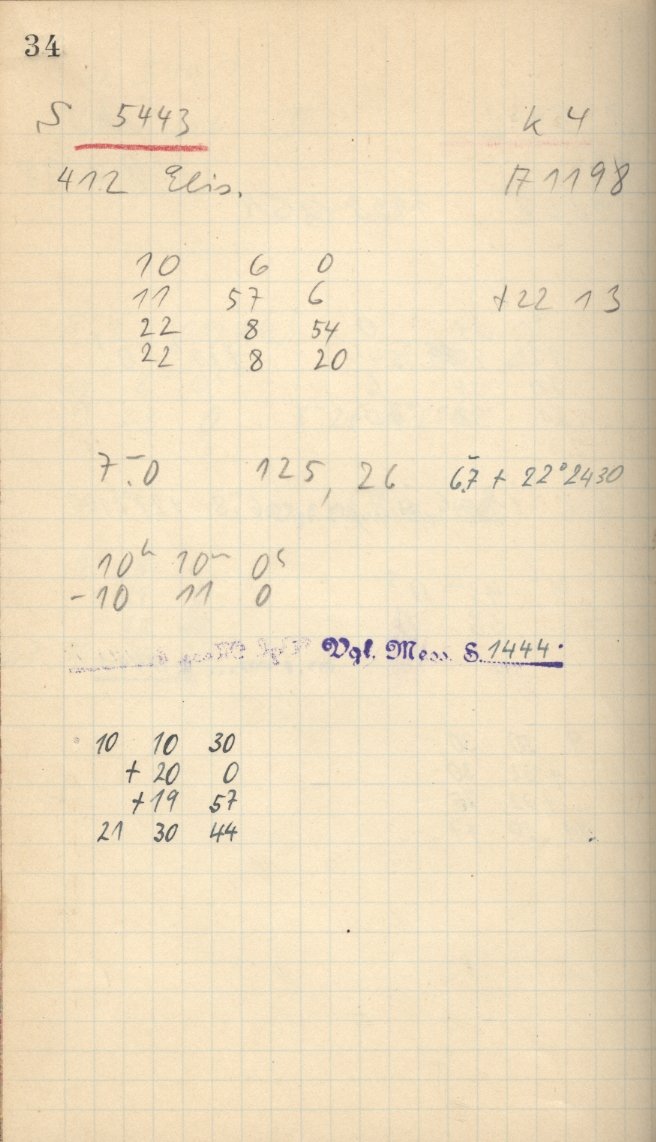 34
S 5443 k 4
412 Elis. 1198
10 6 0
11 57 6 +22 13
22 8 54
22 8 20
7.0 125,26 6.7 + 22° 24 30
10h 10m 0s
-10 11 0
Vgl. Mess. S. 1444.
10 10 30
+ 20 0
+19 57
21 30 44